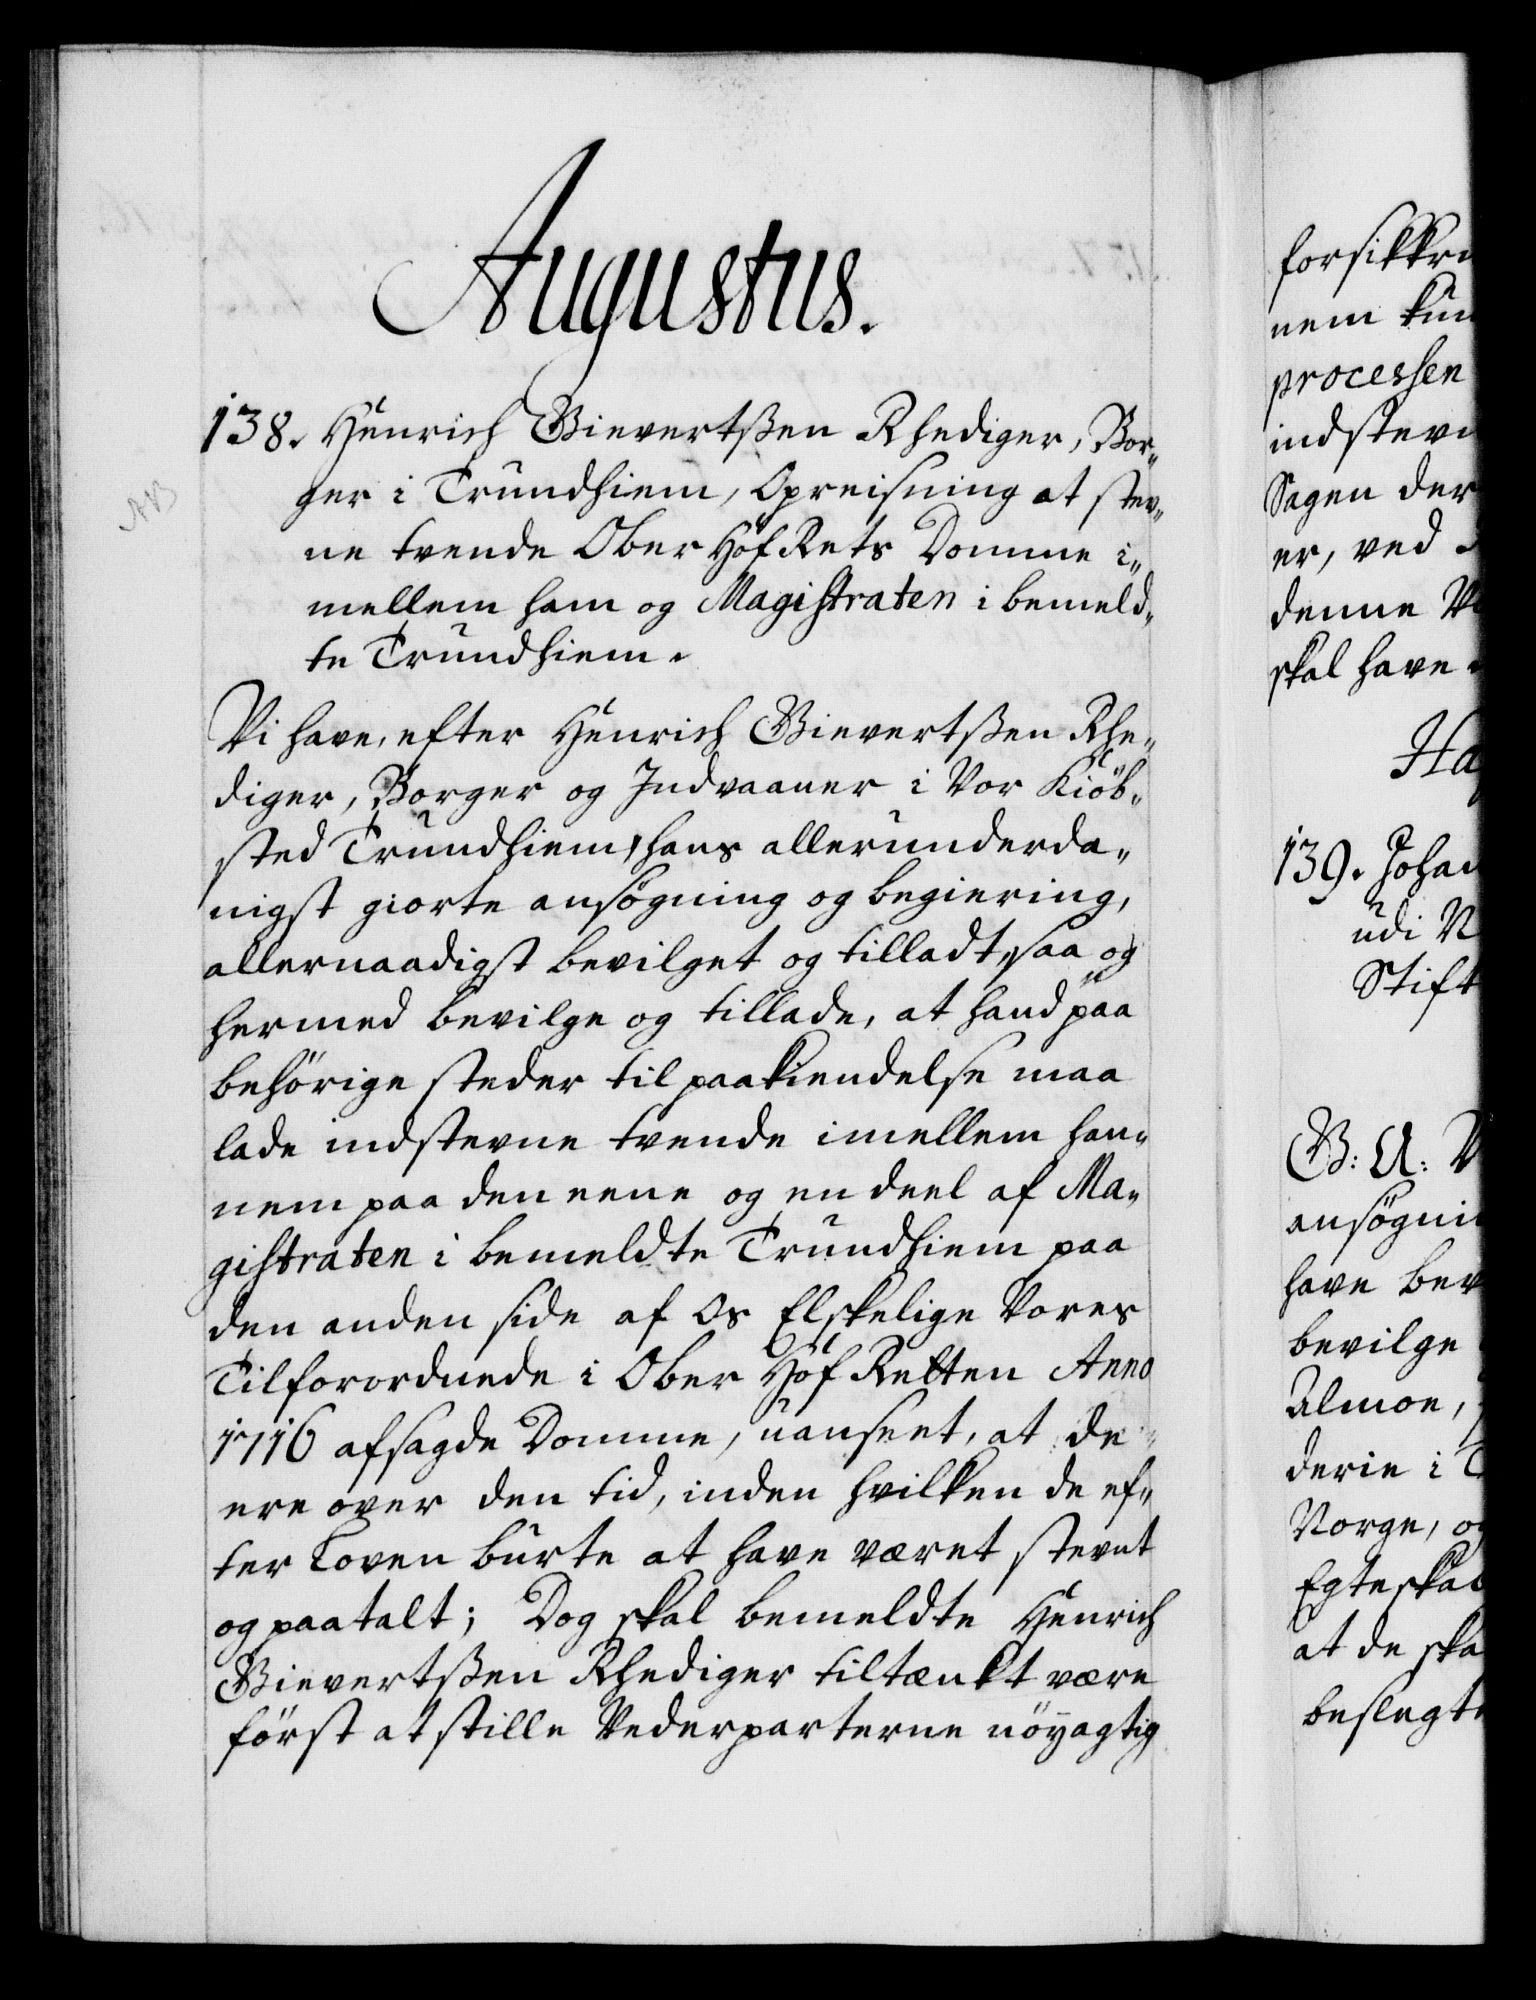 Augustus.
138. Henrich Sievertsßen Rhediger, Bor„
ger i Trundhiem, Opreisning at stev„
ne tvende Ober Hof Rets Domme i„
mellem ham og Magistraten i bemeld„
te Trundhiem.
NB
Vi have, efter Henrich Sievertsßen Rhe„
diger, Borger og Indvaaner i Vor Kiöb„
sted Trundhiem, hans allerunderda„
nigst giorte ansøgning og begiering,
allernaadigst bevilget og tilladt, saa og
hermed bevilge og tillade, at hand paa
behörige steder til paakiendelse maa
lade indstevne tvende imellem han„
nem paa den eene og en deel af Ma„
gistraten i bemeldte Trundhiem paa
den anden side af Os Elskelige Vores
Tilforordnede i Ober Hof Retten Anno
1716 afsagde Domme, uanseet, at de
ere over den tid, inden hvilken de ef„
ter Loven burte at have været stevnt
og paatalt; Dog skal bemeldte Henrich
Sievertsßen Rhediger tiltænkt være
först at stille Vederparterne nöyagtig
forsikkri
nem kun
processen
indstevn
Sagen der
er, ved
denne V
skal have
Ha
139. Johan
udi N
Stift
G: A: V
ansögni
have bev
bevilge
Almoe,
derie i T
Norge, og
Egteskab
at de ska
beslegt